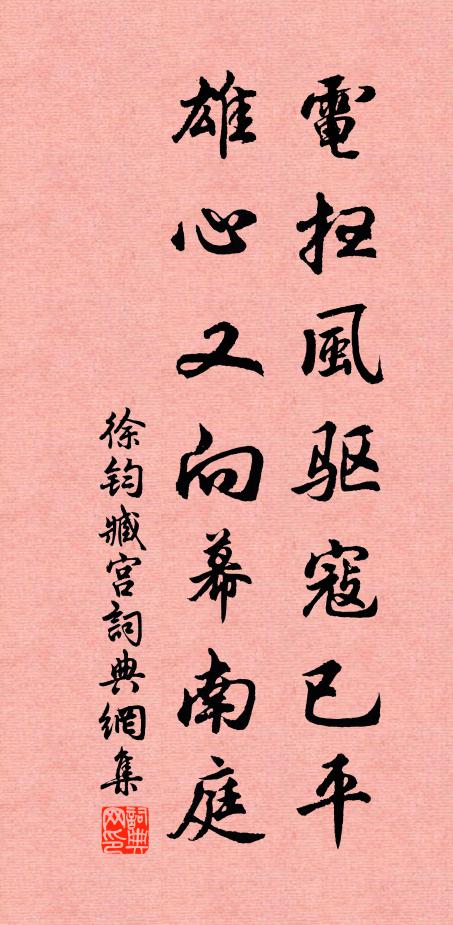 電扫風驱寇已平
雄心又向幕南庭
徐钧臧宫詞典網集
詞典网印